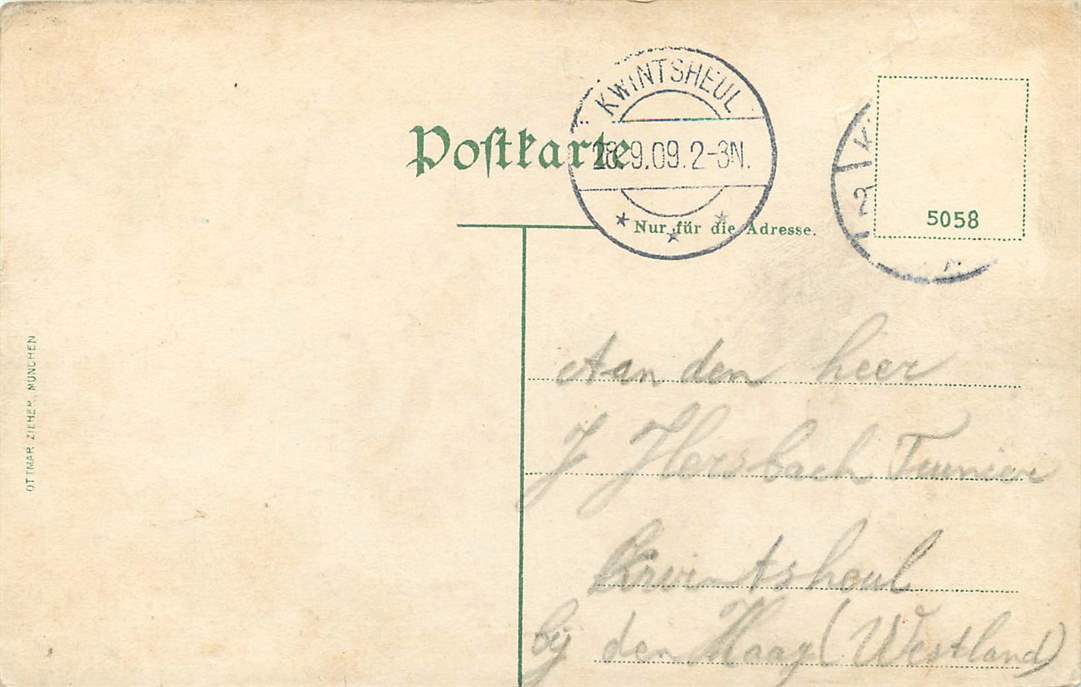 KWINTSHEUL
28.9.09.2-3N.
Postkarte
Nur für die Adresse.
5058
K
2
OTTMAR ZIEHER, MÜNCHEN
Aan den heer
J Horsbach Tuinier
Kwintsheul
bij den Haag (Westland)